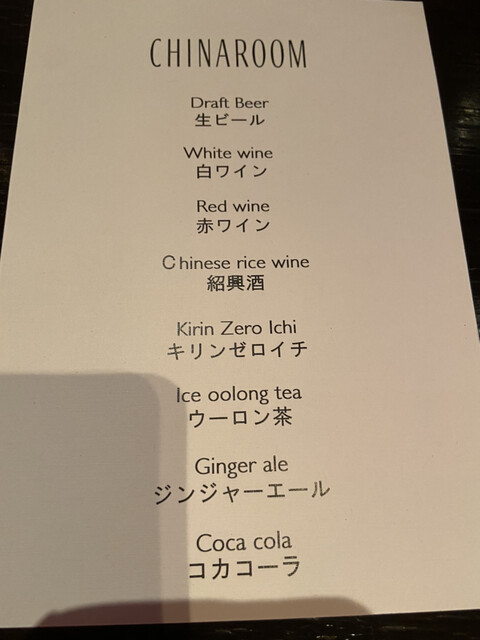 CHINAROOM
Draft Beer
生ビール
White wine
白ワイン
Red wine
赤ワイン
Chinese rice wine
紹興酒
Kirin Zero Ichi
キリンゼロイチ
Ice oolong tea
ウーロン茶
Ginger ale
ジンジャーエール
Coca cola
コカコーラ